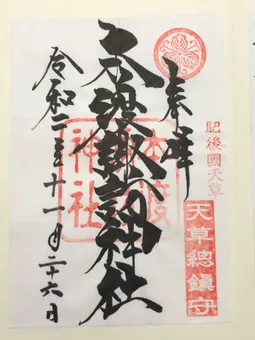 奉拝
肥後國天草
天草總鎮守
本渡諏訪神社
本渡
神社
令和二年十一月二十六日